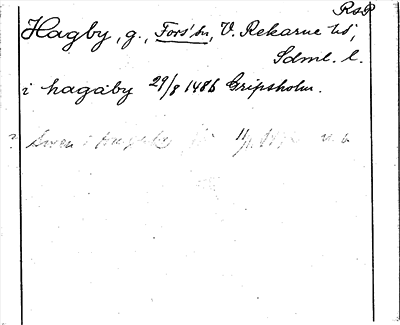 RsP
Hagby, g., Fors' sn, V. Rekarne hd,
Sdml. l.
i hagaby 29/8 1486 Gripsholm.
? i